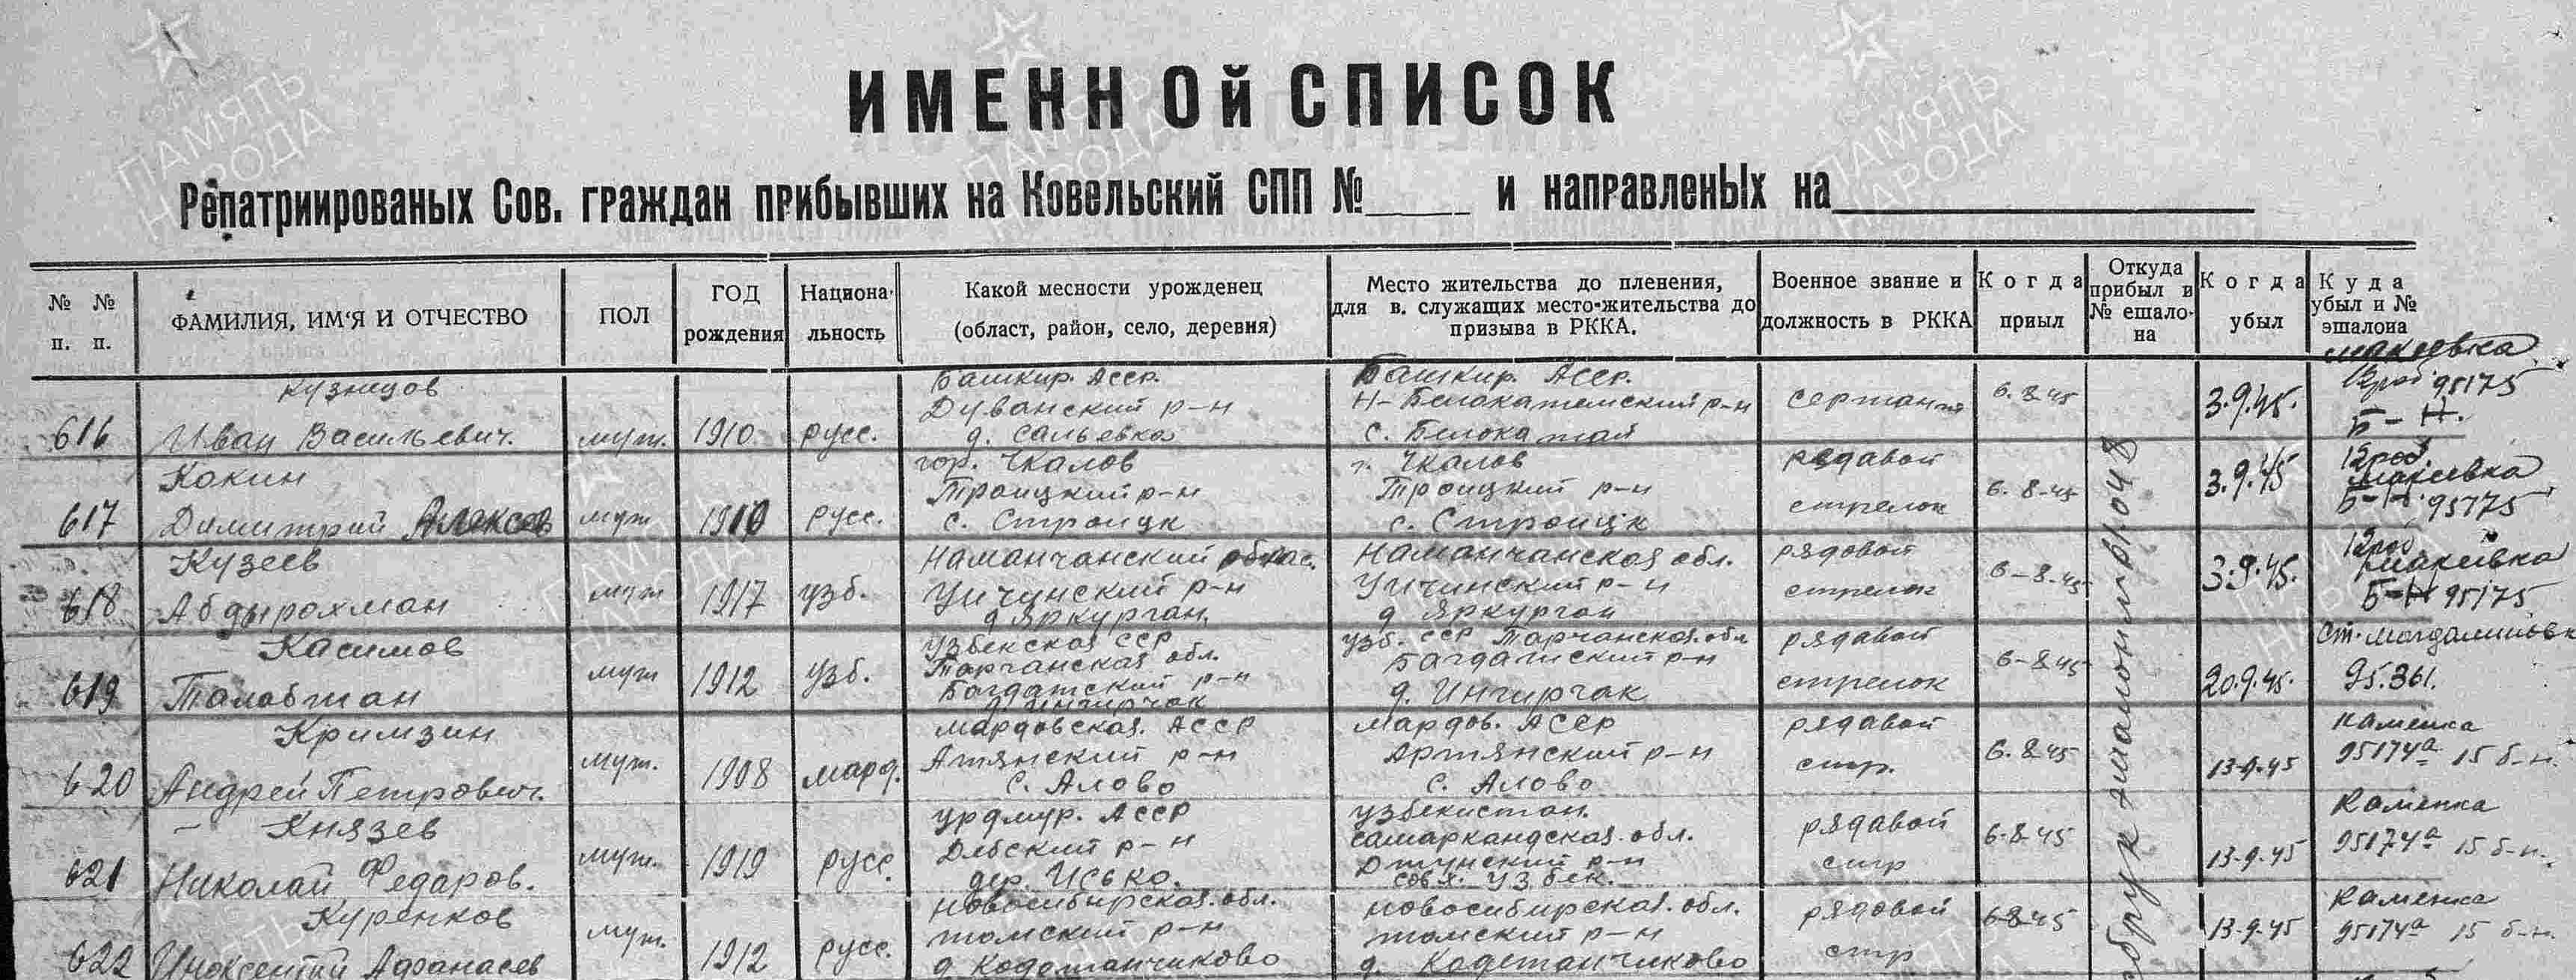 ИМЕННОй СПИСОК
Репатриированых Сов. граждан прибывших на Ковельский СПП №____ и направленЫх на____
№ № п. п.
ФАМИЛИЯ, ИМ'Я И ОТЧЕСТВО
ПОЛ
ГОД рождения
Национа-льность
Какой месности урожденец
(област, район, село, деревня)
Место жительства до пленения,
для в. служащих место-жительства до
призыва в РККА.
Военное звание и
должность в РККА
Когда приыл
Откуда прибыл и № ешало-на
Когда убыл
Куда убыл и № эшалона
616
Кузнецов
Иван Васильевич.
муж.
1910
русс.
Башкир. Асср.
Дуванский р-н
д. Сальевка
Башкир. Асср.
Н-Белокатемский р-н
с. Белокатая
сержант
6.8.45
3.9.45.
Макеевка
95175
Б-Н.
617
Кокин
Димитрий Алексов
муж
1910
русс.
гор. Чкалов
Троицкий р-н
с. Строицк
г. Чкалов
Троицкий р-н
с. Строицк
рядавой
стрелок
6.8-45
3.9.45
12роб
Макеевка
Б-Н 95175
618
Кузеев
Абдырахман
муж
1917
узб.
Наманчанский облас.
Уичунский р-н
д Яркурган
Наманчанская обл.
Уичинский р-н
д Яркурган
рядовой
стрелок
6-8-45
3.9.45.
12роб
Макеевка
Б-Н 95175
619
Касимов
Талабжан
муж
1912
узб.
Узбекская ССР
Тарчанская обл.
Багдатский р-н
д Ингирчак
Узб. ССР Тарчанская обл
Багдатский р-н
д. Ингирчак
рядавой
стрелок
6-8-45
20.9.45.
95.361.
620
Кримзин
Андрей Петрович.
муж.
1908
мард.
мардовская. АССР
Атянский р-н
с. Алово
мардов. АССР
Артянский р-н
с. Алово
рядавой
стр.
6.8-45
13-9-45
Каменка
95174а 15 б-н.
621
Князев
Николай Федаров.
муж.
1919
русс.
урдмур. АССР
Дебский р-н
дер. Исько.
узбекистан.
самаркандская. обл.
р-н
совх. узбек.
рядавой
стр
6-8-45
13-9-45
Каменка
95174а 15 б-н.
622
Куренков
Инокентий Афанасев
муж.
1912
русс.
Новосибирская. обл.
томский р-н
д Кодотанчиково
новосибирская. обл.
томский р-н
д. Кодетанчиково
рядовой
стр
6-8-45
13-9-45
Каменка
95174а 15 б-н.
ПАМЯТЬ НАРОДА
ПАМЯТЬ НАРОДА
ПАМЯТЬ НАРОДА